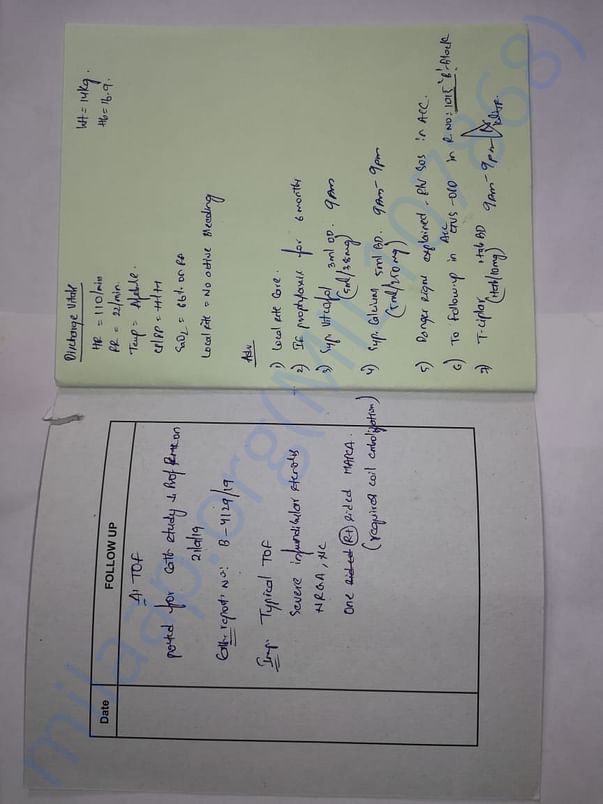 Date
FOLLOW UP
Δ: TOF
posted for Cath study
21/9/19
Cath report No: B-4129/19
Imp: Typical TOF
Severe infundibular stenosis
NRGA, NC
One sided (Rt) sided MAPCA.
(required coil embolization)
Discharge Vitals
HR = 110/min
RR = 22/min.
Temp = Afebrile.
CP/PP = +/+
SaO2 = 66% on RA
Local site = No active Bleeding
Wt = 14kg.
Hb = 16.9.
Adv
1) Local site care.
2) IE prophylaxis for 6 months
3) Syp. 3ml OD. 9Am
4) Syp. Calcimax 5ml BD. 9Am - 9pm
(5ml/250mg)
5) Danger signs explained. RW SOS in ACC.
6) To followup in ACC CTVS-OPD in R.NO: 1015 'B' Block
7) T. Ciplar 1tab BD 9Am - 9pm
(1tab/10mg)
milaap.org(MILAAP
107868)